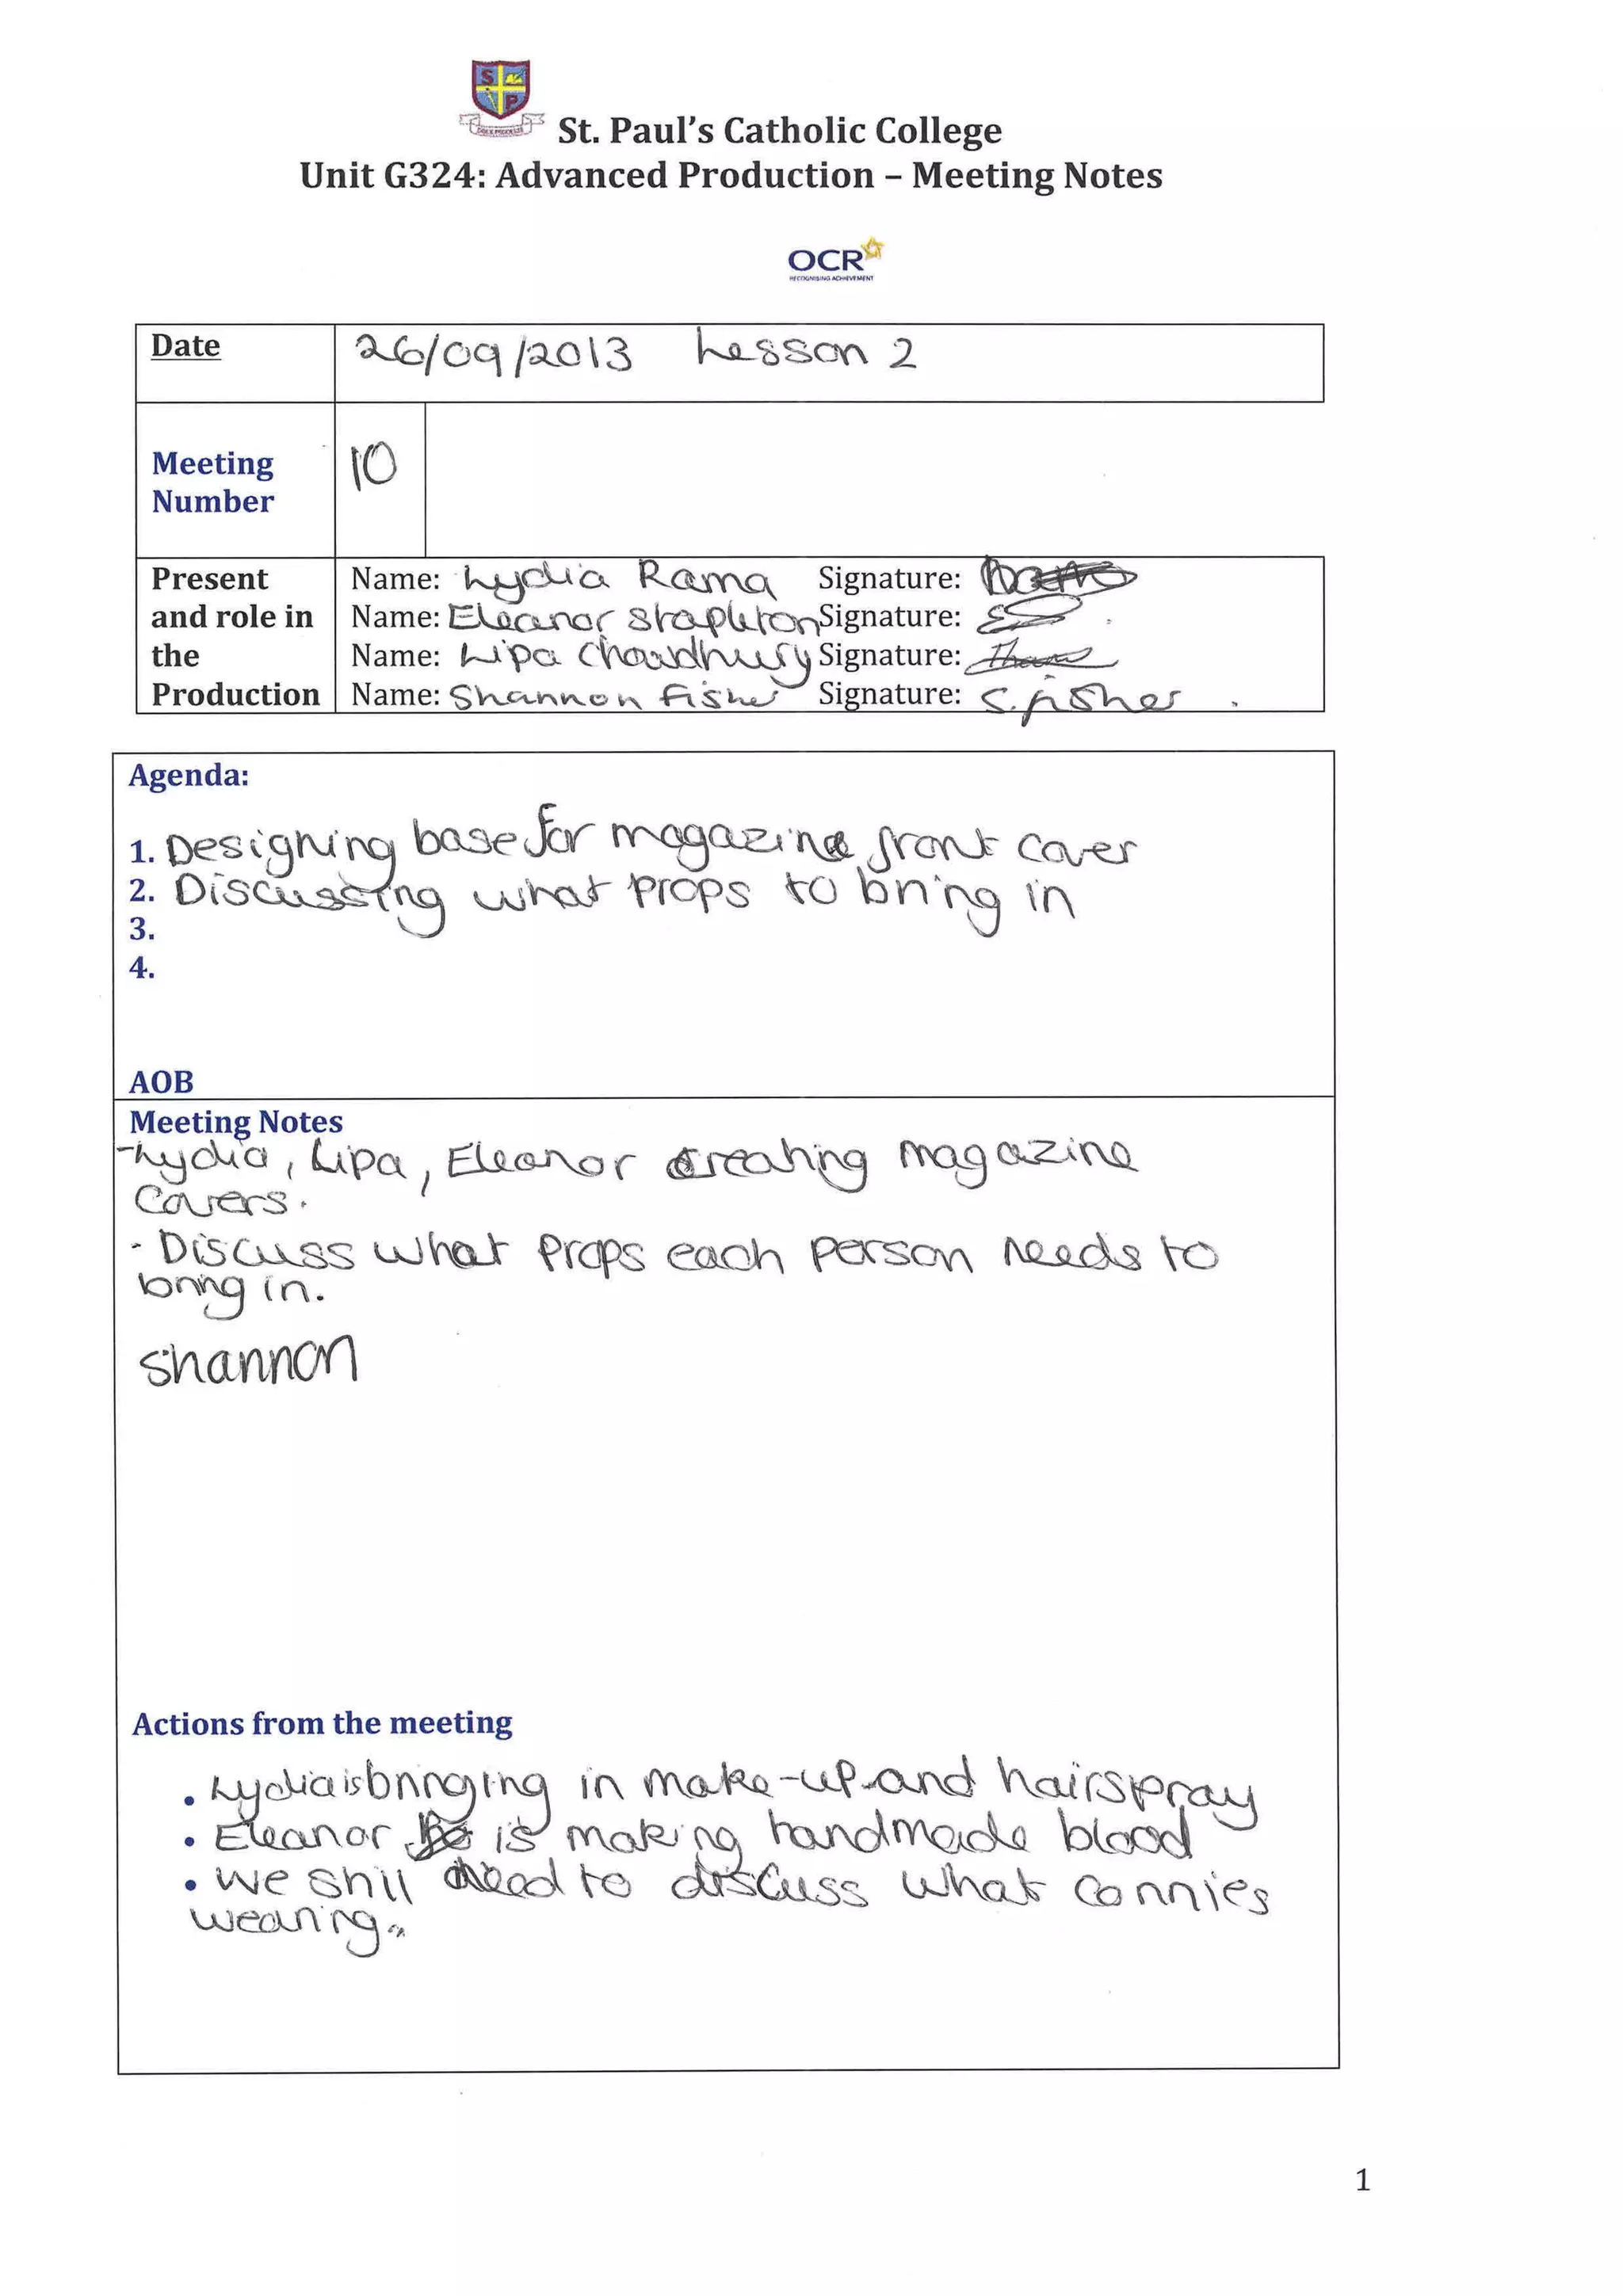 S P
St. Paul's Catholic College
Unit G324: Advanced Production – Meeting Notes
OCR
RECOGNISING ACHIEVEMENT
Date 26/09/2013 Lesson 2
Meeting Number 10
Present and role in the Production
Name: Lydia Rama Signature:
Name: Eleanor Stapleton Signature:
Name: Lipa Chowdhury Signature:
Name: Shannon Fisher Signature: S.fisher
Agenda:
1. Designing base for magazine front cover
2. Discussing what props to bring in
3.
4.
AOB
Meeting Notes
-Lydia, Lipa, Eleanor creating magazine
covers.
- Discuss what props each person needs to
bring in.
Shannon
Actions from the meeting
• Lydia is bringing in make-up and hairspray
• Eleanor is making handmade blood
• We still need to discuss what connies
wearing.
1